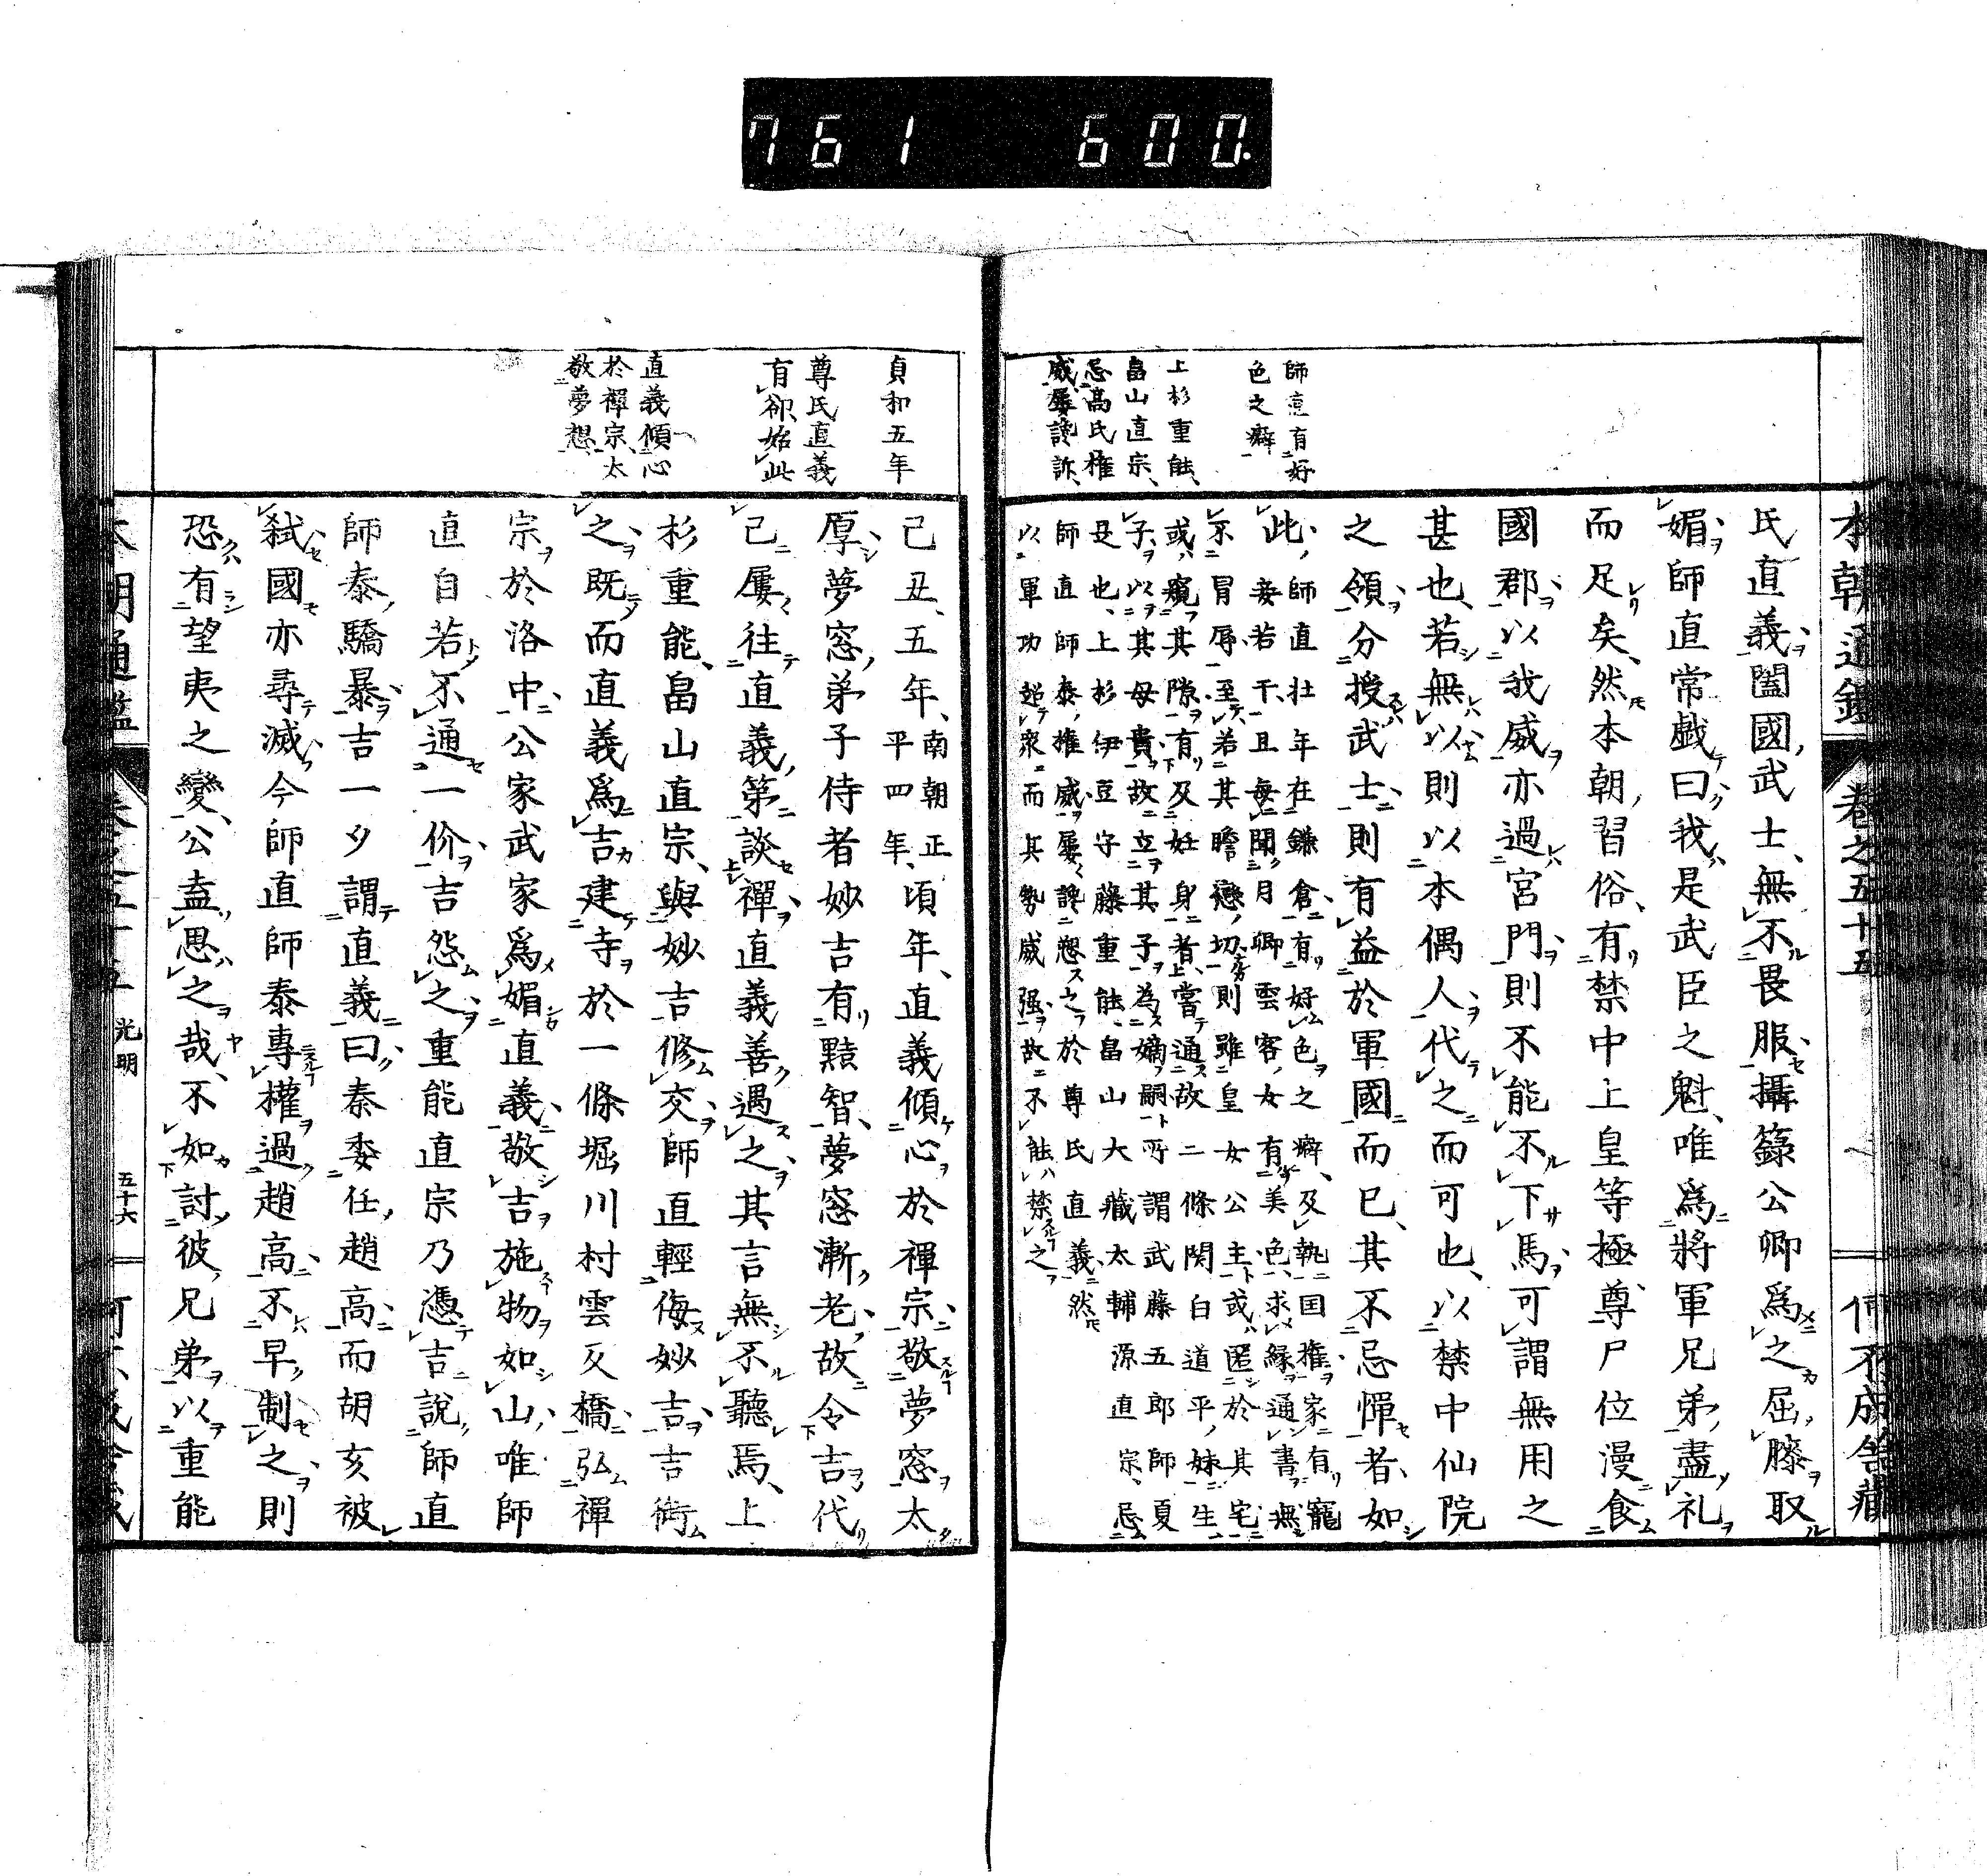 761 600.
本朝通鑑 卷之五十五 何不成舍藏
師直有好
色之癖
上杉重能、
畠山直宗、
忌高氏權
威屢讒訴、
氏直義、闔國武士、無不畏服、攝籙公卿爲之屈膝、取
媚師直常戲曰、我是武臣之魁、唯爲將軍兄弟、盡礼
而足矣、然本朝習俗、有禁中上皇等極尊尸位漫食
國郡、以我威亦過宮門、則不能不下馬、可謂無用之
甚也、若無以則以本偶人代之而可也、以禁中仙院
之領、分授武士、則有益於軍國而已、其不忌憚者、如
此、師直壯年在鎌倉、有好色之癖、及執国權、家有寵
妾若干、且每聞月卿雲客女有美色、求緣通書、無
不冒辱、至若其瞻戀切、則雖皇女公主、或匿於其宅、
或窺其隙、有及妊身者、當通故二條関白道平妹、生
子、以其母貴、故立其子為嫡嗣、所謂武藤五郎師夏
是也、上杉伊豆守藤重能、畠山大藏太輔源直宗、忌
師直師泰權威、屢讒愬之於尊氏直義、然
以軍功超衆、而其勢威强、故不能禁之
貞和五年
尊氏直義
有郤始此
直義傾心
於禪宗、太
敬夢想、
己丑、五年、南朝正平四年、頃年、直義傾心於禪宗、敬夢窓太
厚、夢窓弟子侍者妙吉有黠智、夢窓漸老、故令吉代
己屢往直義第談禪、直義善遇之、其言無不聽焉、上
杉重能、畠山直宗、與妙吉修交、師直輕侮妙吉、吉銜
之、既而直義爲吉建寺於一條堀川村雲反橋、弘禪
宗於洛中、公家武家爲媚直義、敬吉施物如山、唯師
直自若不通一价、吉怨之、重能直宗乃憑吉說師直
師泰驕暴、吉一夕謂直義曰、秦委任趙高、而胡亥被
弑、國亦尋滅、今師直師泰專權過趙高、不早制之、則
恐有望夷之變、公盍思之哉、不如討彼兄弟、以重能
光明 五十六